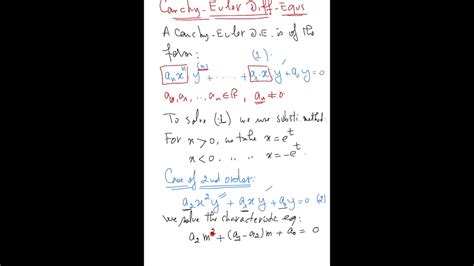 Cauchy-Euler Diff-Equs
A Cauchy-Euler D.E. is of the
form: (1)
aₙxⁿ y⁽ⁿ⁾ + ...... + a₁x y′ + a₀y = 0
a₀, a₁, ..., aₙ ∈ ℝ, aₙ ≠ 0
To solve (1) we use substi. method.
For x > 0, we take x = eᵗ
x < 0, " " x = -eᵗ
Case of 2nd order:
a₂x²y″ + a₁xy′ + a₀y = 0 (2)
We solve the characteristic eq:
a₂m² + (a₁-a₂)m + a₀ = 0